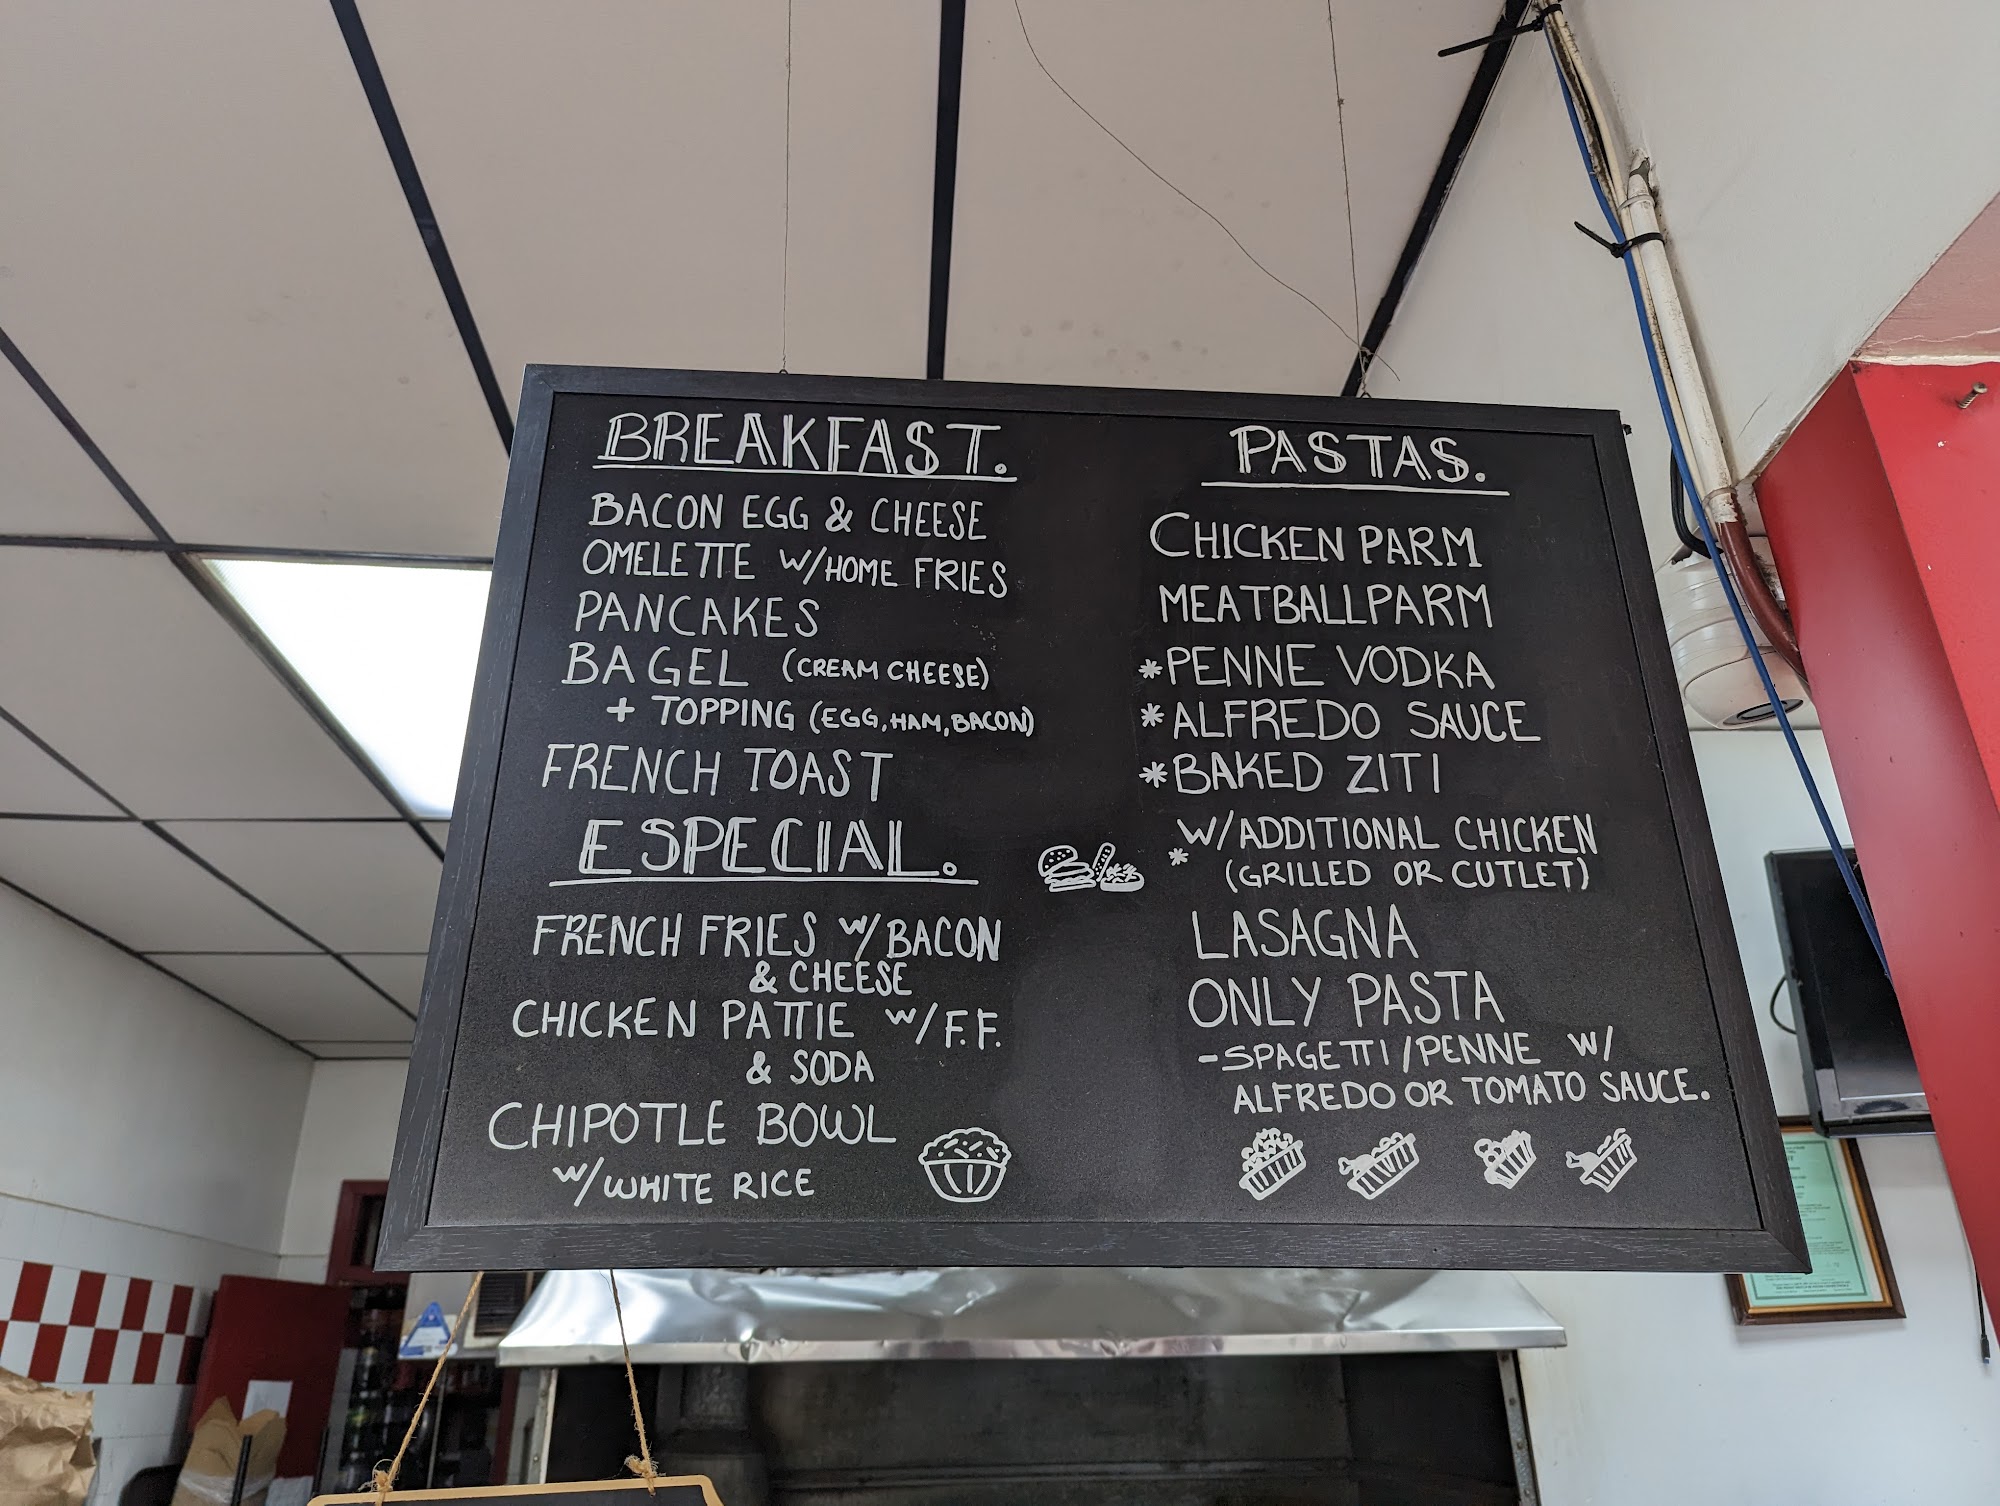 BREAKFAST.
BACON EGG & CHEESE
OMELETTE W/HOME FRIES
PANCAKES
BAGEL (CREAM CHEESE)
+ TOPPING (EGG, HAM, BACON)
FRENCH TOAST
ESPECIAL.
FRENCH FRIES W/ BACON
& CHEESE
CHICKEN PATTIE W/ F.F.
& SODA
CHIPOTLE BOWL
W/ WHITE RICE
PASTAS.
CHICKEN PARM
MEATBALLPARM
*PENNE VODKA
*ALFREDO SAUCE
*BAKED ZITI
* W/ADDITIONAL CHICKEN
(GRILLED OR CUTLET)
LASAGNA
ONLY PASTA
-SPAGETTI/PENNE W/
ALFREDO OR TOMATO SAUCE.